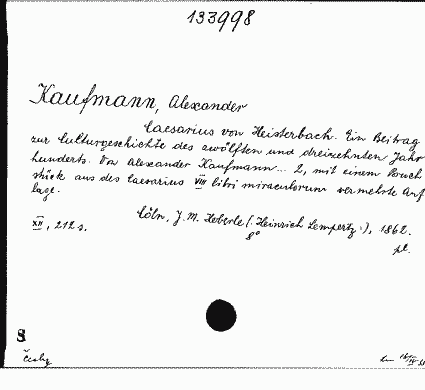 133998
Kaufmann, Alexander
Caesarius von Heisterbach. Ein Beitrag
zur Culturgeschichte des zwölften und dreizehnten Jahr
hunderts. Von Alexander Kaufmann... 2, mit einem Bruch
stück aus des Caesarius VIII libri miraculorum vermehrte Auf
lage.
Cöln, J. M. Heberle (Heinrich Lempertz), 1862.
XII, 212 s. 8°
pl.
S
Česky